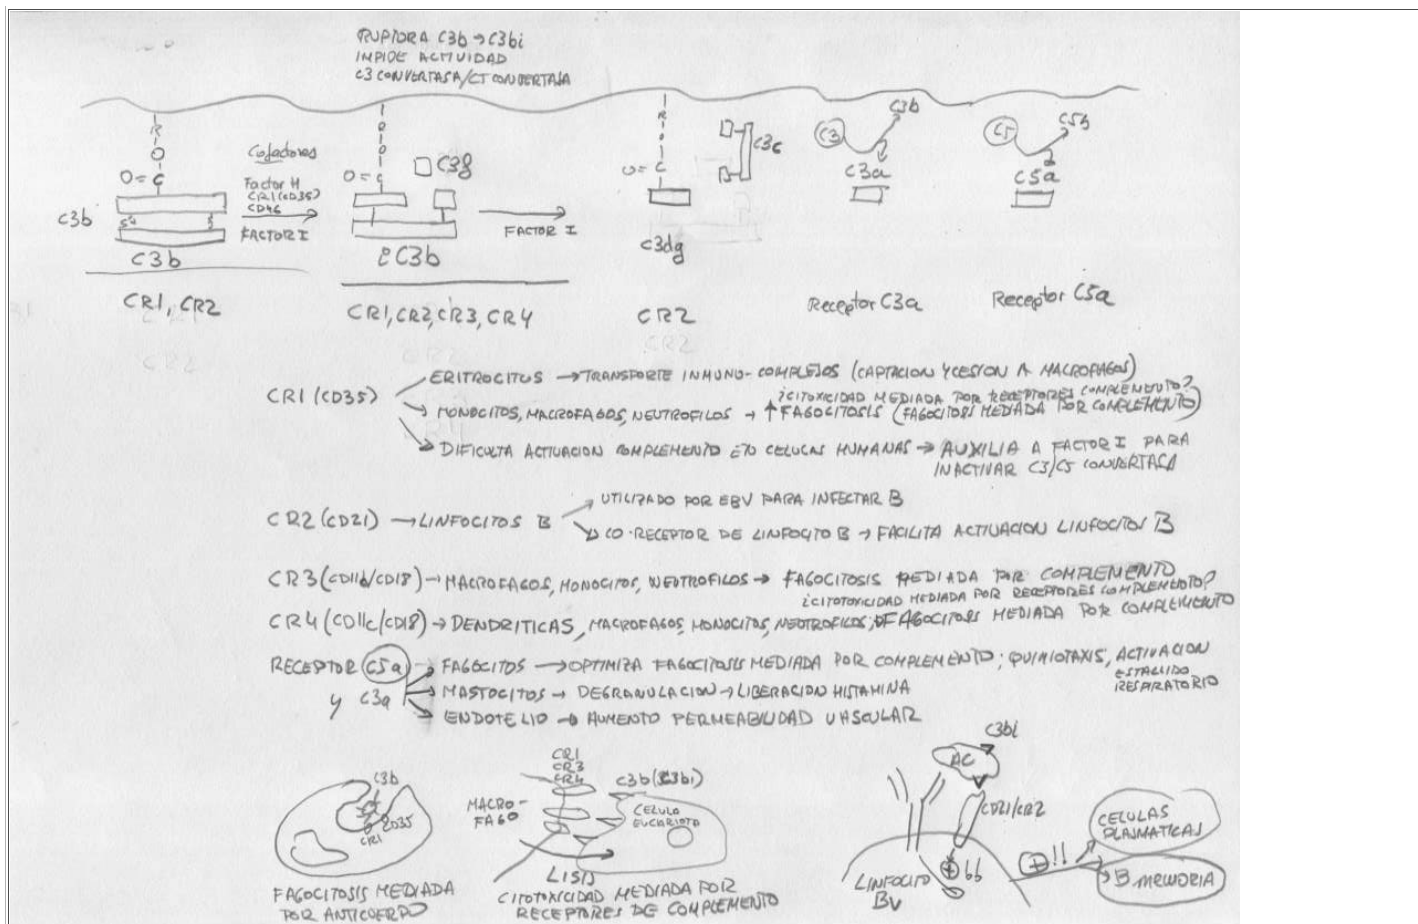 RUPTORA C3b → C3bi
INPIDE ACTIVIDAD
C3 CONVERTASA/CT CONVERTASA
R
O
O=C
C3b
S S
C3b
CR1, CR2
Cofactores
Factor H
CR1 (CD35)
CD46
FACTOR I
O=C
C3g
C3b
CR1, CR2, CR3, CR4
FACTOR I
R
O
O=C
C3c
C3dg
CR2
C3
C3b
C3a
Receptor C3a
C5
C5b
C5a
Receptor C5a
CR1 (CD35)
ERITROCITOS → TRANSPORTE INMUNO-COMPLEJOS (CAPTACION Y CESION A MACROFAGOS)
¿CITOTOXICIDAD MEDIADA POR RECEPTORES COMPLEMENTO?
MONOCITOS, MACROFAGOS, NEUTROFILOS → ↑ FAGOCITOSIS (FAGOCITOSIS MEDIADA POR COMPLEMENTO)
DIFICULTA ACTUACION COMPLEMENTO EN CELULAS HUMANAS → AUXILIA A FACTOR I PARA
INACTIVAR C3/C5 CONVERTASA
CR2 (CD21) → LINFOCITOS B
UTILIZADO POR EBV PARA INFECTAR B
CO-RECEPTOR DE LINFOCITO B → FACILITA ACTIVACION LINFOCITOS B
CR3 (CD11b/CD18) → MACROFAGOS, MONOCITOS, NEUTROFILOS → FAGOCITOSIS MEDIADA POR COMPLEMENTO
¿CITOTOXICIDAD MEDIADA POR RECEPTORES COMPLEMENTO?
CR4 (CD11c/CD18) → DENDRITICAS, MACROFAGOS, MONOCITOS, NEUTROFILOS, FAGOCITOSIS MEDIADA POR COMPLEMENTO
RECEPTOR C5a
y C3a
FAGOCITOS → OPTIMIZA FAGOCITOSIS MEDIADA POR COMPLEMENTO; QUIMIOTAXIS, ACTIVACION
ESTALLIDO
RESPIRATORIO
MASTOCITOS → DEGRANULACION → LIBERACION HISTAMINA
ENDOTELIO → AUMENTO PERMEABILIDAD VASCULAR
C3b
CD35
CR1
FAGOCITOSIS MEDIADA
POR ANTICUERPO
CR1
CR3
CR4
MACRO-
FAGO
C3b (C3bi)
CELULA
EUCARIOTO
LISIS
CITOTOXICIDAD MEDIADA POR
RECEPTORES DE COMPLEMENTO
C3bi
AC
CD21/CR2
LINFOCITO
BV
+
+ !!
CELULAS
PLASMATICAS
B MEMORIA